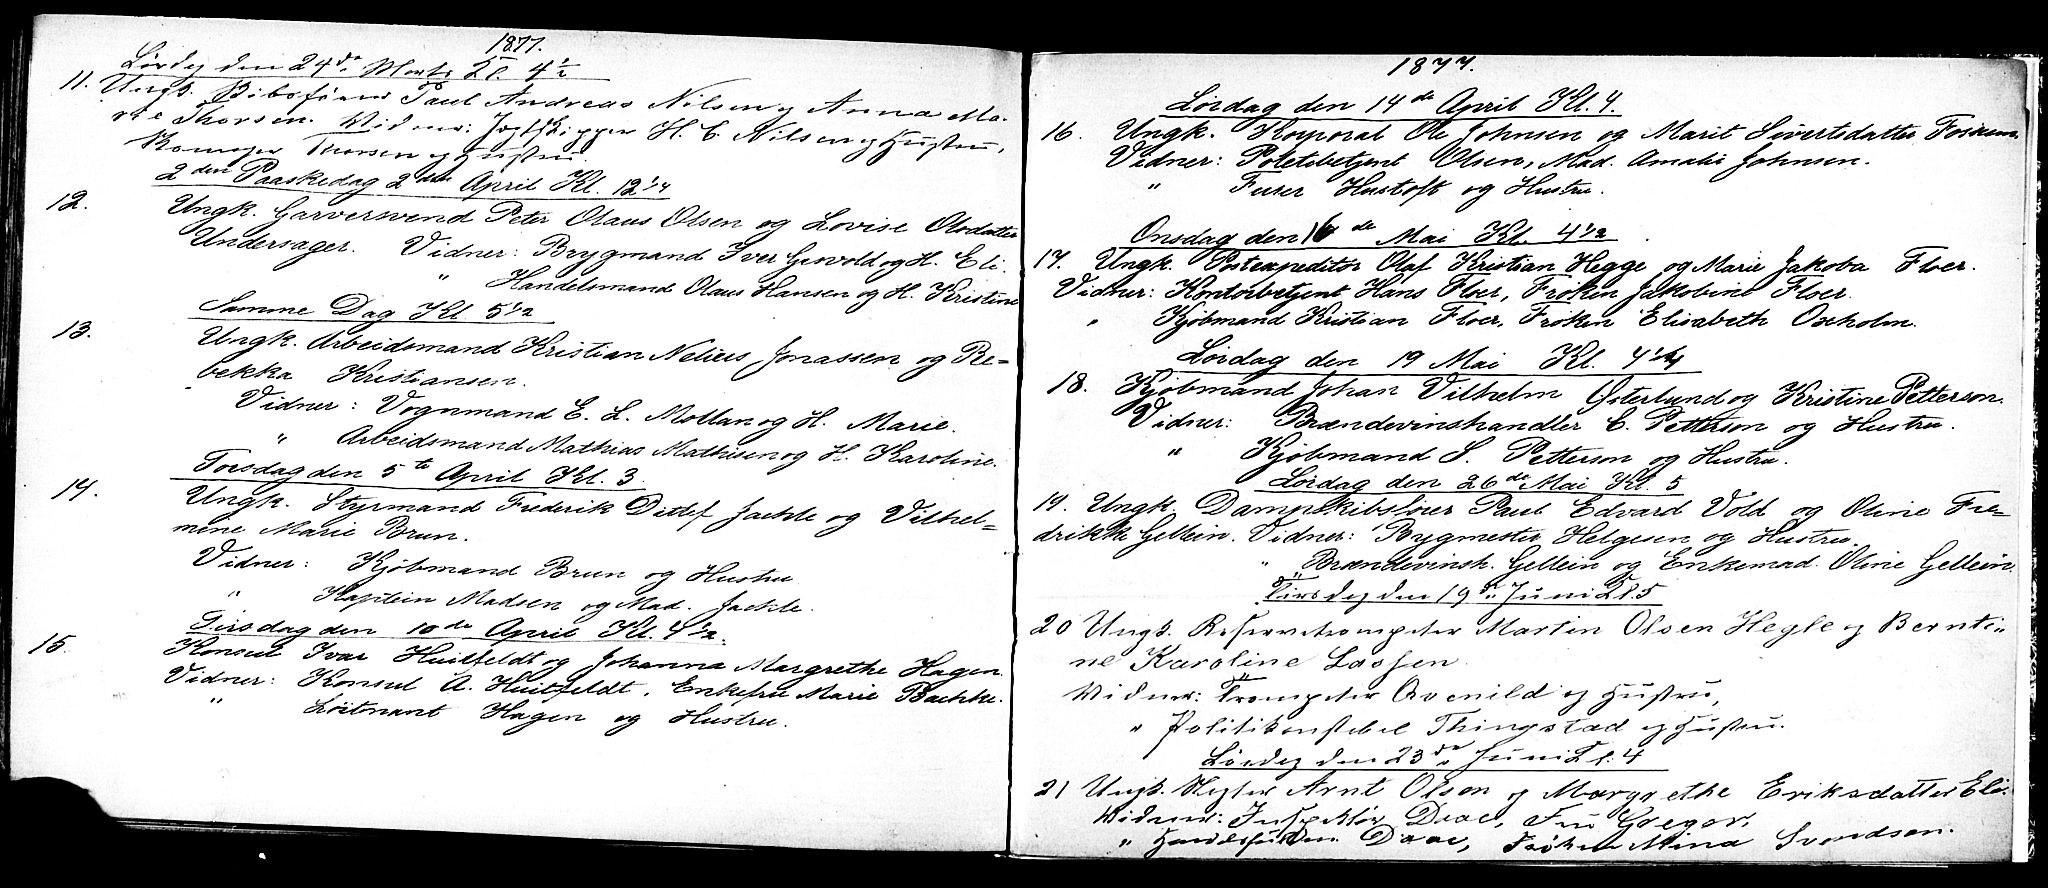 1877.
Lørdag den 24de Marts Kl. 4 1/2
11. Ungk. Skibsfører Paul Andreas Nilsen og Anna Ma-
rie Thorsen. Vidner: Jagtskipper H. C. Nilsen og Hustru,
Thorsen og Hustru.
2den Paaskedag 2den April Kl. 12 1/4
12. Ungk. Garversvend Peter Olaus Olsen og Lovise Olsdatter
Undersager. Vidner: Brygmand Iver Grevold og H. Eli.
" Handelsmand Olaus Hansen og H. Kristine
Samme Dag Kl 5 1/2
13. Ungk. Arbeidsmand Kristian Nelius Jonassen og Re-
bekka Kristiansen.
Vidner: Vognmand E. L. Mollan og H. Marie.
" Arbeidsmand Mathias Mathisen og H. Karoline.
Torsdag den 5te April Kl. 3
14. Ungk. Styrmand Frederik Detlef Jackle og Vilhel-
mine Marie Brun.
Vidner: Kjøbmand Brun og Hustru
" Kaptein Madsen og Mad. Jackle.
Tirsdag den 10de April Kl. 4 1/2.
15. Konsul Ivar Huitfeldt og Johanna Margrethe Hagen
Vidner: Konsul A. Huitfeldt, Enkefru Marie Bachke.
" Løitnant Hagen og Hustru.
1877.
Lørdag den 14de April Kl. 4.
16. Ungk. Korporal Ole Johnsen og Marit Sivertsdatter
Vidner: Politibetjent Olsen, Mad. Amalie Johnsen.
" Furer Hustoft og Hustru.
Onsdag den 16de Mai Kl. 4 1/2
17. Ungk. Postexpeditør Olaf Kristian Hegge og Marie Jakoba Floer.
Vidner: Kontorbetjent Hans Floer, Frøken Jakobine Floer
" Kjøbmand Kristian Floer, Frøken Elisabeth Oxholm.
Lørdag den 19 Mai Kl. 4 1/4
18. Kjøbmand Johan Vilhelm Østerlund og Kristine Petterson.
Vidner: Brændevinshandler C. Petterson og Hustru.
" Kjøbmand S. Petterson og Hustru.
Lørdag den 26de Mai Kl. 5
19. Ungk. Dampskibsfører Paul Edvard Vold og Oline Fre-
drikke Gellein. Vidner: Bygmester Helgesen og Hustru.
" Brændevinsh. Gellein og Enkemad. Oline Gellein.
Tirsdag den 19de Juni Kl 5
20 Ungk. Reservetrompeter Martin Olsen Hegle og Bernti-
ne Karoline Lassen.
Vidner: Trompeter Avenild og Hustru,
" Politikonstabel Thingstad og Hustru.
Lørdag den 23de Juni Kl. 4
21 Ungk. Arnt Olsen og Margrethe Eriksdatter Eli.
Vidner: Inspektør Daae, Fru Greger,
" Daae, Frøken Mina Svendsen.